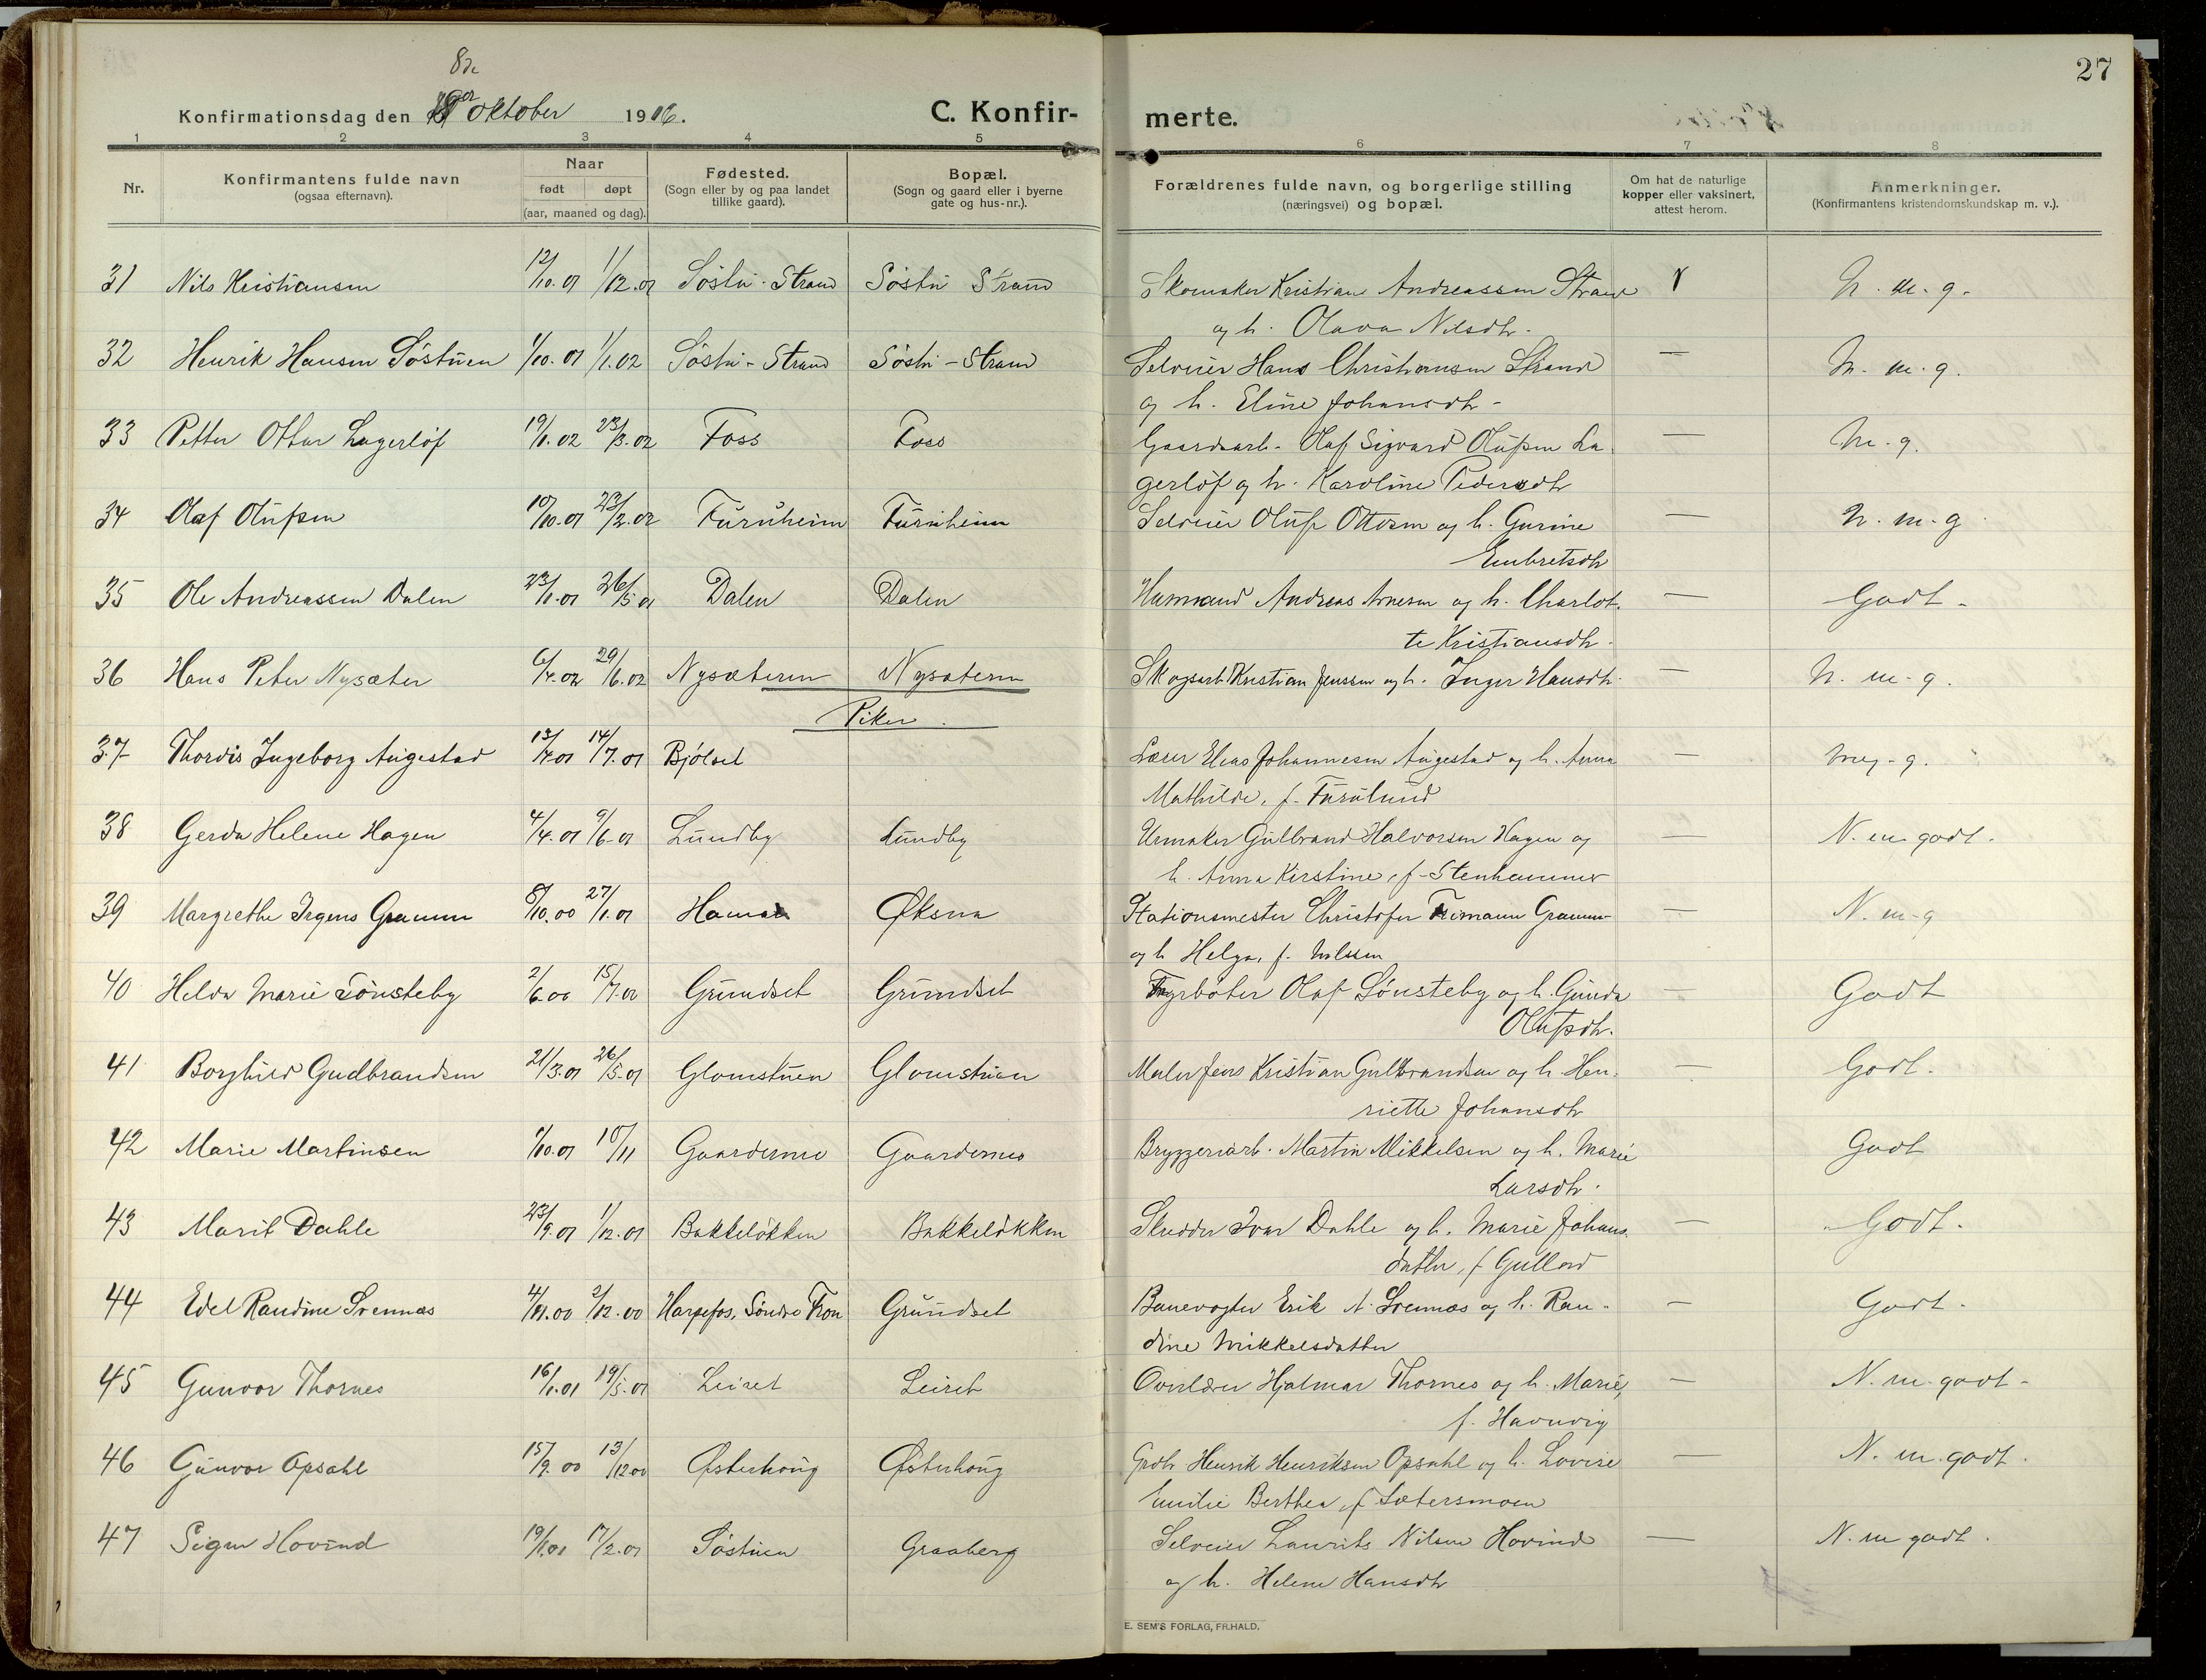 27
8de
Konfirmationsdag den oktober 1916. C. Konfir- merte.
1 2 3 4 5 6 7 8
Nr. Konfirmantens fulde navn (ogsaa efternavn). Naar født døpt (aar, maaned og dag). Fødested. (Sogn eller by og paa landet tillike gaard). Bopæl. (Sogn og gaard eller i byerne gate og hus-nr.). Forældrenes fulde navn, og borgerlige stilling (næringsvei) og bopæl. Om hat de naturlige kopper eller vaksinert, attest herom. Anmerkninger. (Konfirmantens kristendomskundskap m. v.).
31 Nils Kristiansen 12/10.01 1/12.01 Söstu-Strand Söstu Strand Skomaker Kristian Andreassen Strand V N. m. g.
og h. Olava Nilsdtr.
32 Henrik Hansen Söstuen 1/10.01 1/1.02 Söstu-Strand Söstu-Strand Selveier Hans Christiansen Strand — N. m. g.
og h. Eline Johansdtr.
33 Petter Ottar Lagerlöf 19/1.02 23/3.02 Foss Foss Gaardsarb. Olaf Sigvard Olufsen La- — M. g.
gerlöf og h. Karoline Pedersdtr
34 Olaf Olufsen 10/10.01 23/2.02 Furuheim Furuheim Selveier Oluf Ottosen og h. Gurine — N. m. g
Embretsdtr
35 Ole Andreassen Dalen 23/1.01 26/5.01 Dalen Dalen Husmand Andreas Arnesen og h. Charlot- — Godt.
te Kristiansdtr.
36 Hans Peter Nysæter 6/4.02 29/6.02 Nysæteren Nysæteren Skogsarb. Kristian Jenssen og h. Inger Hansdtr. — N. m. g.
Piker.
37 Thordis Ingeborg Augestad 13/4.01 14/7.01 Bjölset Lærer Elias Johannesen Augestad og h. Anna — meg. g.
Mathilde, f. Furulund
38 Gerda Helene Hagen 4/4.01 9/6.01 Lundby Lundby Urmaker Gulbrand Halvorsen Hagen og — N. m. godt.
h. Anna Kirstine, f. Stenhammer
39 Margrethe Irgens Gramm 8/10.00 27/1.01 Hamar Øksna Stationsmester Christofer Gramm — N. m. g
og h Helga, f. Nilssen
40 Helda Marie Sönsteby 2/6.00 15/7.00 Grundset Grundset Fyrböter Olaf Sönsteby og h. Gunda — Godt
Olufsdtr.
41 Borghild Gudbrandsen 21/3.01 26/5.01 Glomstuen Glomstuen Maler Jens Kristian Gulbrandsen og h. Hen- — Godt.
riette Johansdtr
42 Marie Martinsen 1/10.01 10/11 Gaarderne Gaarderne Bryggeriarb. Martin Mikkelsen og h. Marie Godt
Larsdtr.
43 Marit Dahle 23/9.01 1/12.01 Bakkelökken Bakkelökken Skredder Ivar Dahle og h. Marie Johans- — Godt.
datter, f Gullord
44 Edel Randine Svennæs 4/11.00 2/12.00 Harpefos, Söndre Fron Grundset Banevogter Erik A. Svennæs og h. Ran- — Godt.
dine Mikkelsdatter
45 Gunvor Thornes 16/1.01 19/5.01 Leiret Leiret Overlærer Hjalmar Thornes og h. Marie, — N. m. godt.
f. Havnvig
46 Gunvor Opsahl 15/9.00 13/12.00 Østerhaug Østerhaug Grdb. Henrik Henriksen Opsahl og h. Lovise — N. m. godt.
Emilie Berthea, f Sætersmoen
47 Signe Hovind 19/1.01 17/2.01 Söstuen Graaberg Selveier Laurits Nilsen Hovind — N. m godt.
og h. Helene Hansdtr
E. SEM'S FORLAG, FR.HALD.